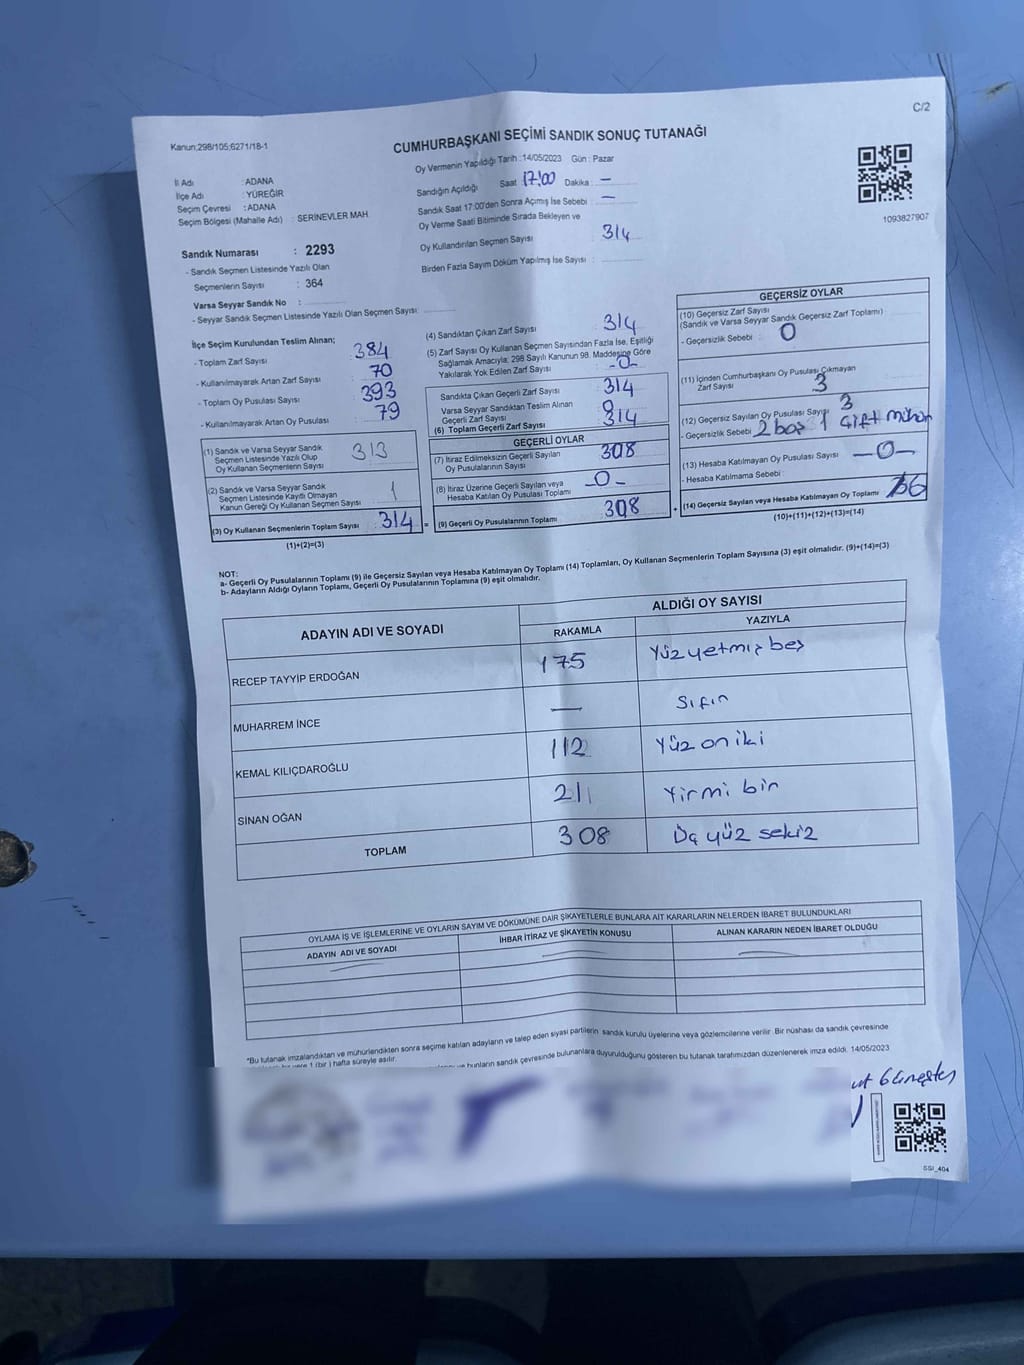 C/2
Kanun;298/105;6271/18-1
CUMHURBAŞKANI SEÇİMİ SANDIK SONUÇ TUTANAĞI
Oy Vermenin Yapıldığı Tarih :14/05/2023 Gün : Pazar
İl Adı : ADANA
İlçe Adı : YÜREĞİR
Seçim Çevresi : ADANA
Seçim Bölgesi (Mahalle Adı) : SERİNEVLER MAH
Sandığın Açıldığı Saat 17:00 Dakika : —
Sandık Saat 17:00'den Sonra Açımış İse Sebebi : —
Oy Verme Saati Bitiminde Sırada Bekleyen ve
Oy Kullandırılan Seçmen Sayısı 314
Birden Fazla Sayım Döküm Yapılmış İse Sayısı :
1093827907
Sandık Numarası : 2293
- Sandık Seçmen Listesinde Yazılı Olan
Seçmenlerin Sayısı : 364
Varsa Seyyar Sandık No :
- Seyyar Sandık Seçmen Listesinde Yazılı Olan Seçmen Sayısı:
İlçe Seçim Kurulundan Teslim Alınan;
- Toplam Zarf Sayısı : 384
- Kullanılmayarak Artan Zarf Sayısı : 70
- Toplam Oy Pusulası Sayısı : 393
- Kullanılmayarak Artan Oy Pusulası : 79
(1) Sandık ve Varsa Seyyar Sandık
Seçmen Listesinde Yazılı Olup
Oy Kullanan Seçmenlerin Sayısı : 313
(2) Sandık ve Varsa Seyyar Sandık
Seçmen Listesinde Kayıtlı Olmayan
Kanun Gereği Oy Kullanan Seçmen Sayısı : 1
(3) Oy Kullanan Seçmenlerin Toplam Sayısı : 314 =
(1)+(2)=(3)
(4) Sandıktan Çıkan Zarf Sayısı 314
(5) Zarf Sayısı Oy Kullanan Seçmen Sayısından Fazla İse, Eşitliği
Sağlamak Amacıyla; 298 Sayılı Kanunun 98. Maddesine Göre
Yakılarak Yok Edilen Zarf Sayısı -0-
Sandıkta Çıkan Geçerli Zarf Sayısı 314
Varsa Seyyar Sandıktan Teslim Alınan
Geçerli Zarf Sayısı 0
(6) Toplam Geçerli Zarf Sayısı 314
GEÇERLİ OYLAR
(7) İtiraz Edilmeksizin Geçerli Sayılan
Oy Pusulalarının Sayısı 308
(8) İtiraz Üzerine Geçerli Sayılan veya
Hesaba Katılan Oy Pusulası Toplamı -0-
(9) Geçerli Oy Pusulalarının Toplamı 308 +
GEÇERSİZ OYLAR
(10) Geçersiz Zarf Sayısı
(Sandık ve Varsa Seyyar Sandık Geçersiz Zarf Toplamı)
- Geçersizlik Sebebi : 0
(11) İçinden Cumhurbaşkanı Oy Pusulası Çıkmayan
Zarf Sayısı 3
(12) Geçersiz Sayılan Oy Pusulası Sayısı 3
- Geçersizlik Sebebi 2 boş 1 Çift mühür
(13) Hesaba Katılmayan Oy Pusulası Sayısı -0-
- Hesaba Katılmama Sebebi :
(14) Geçersiz Sayılan veya Hesaba Katılmayan Oy Toplamı 6
(10)+(11)+(12)+(13)=(14)
NOT:
a- Geçerli Oy Pusulalarının Toplamı (9) ile Geçersiz Sayılan veya Hesaba Katılmayan Oy Toplamı (14) Toplamları, Oy Kullanan Seçmenlerin Toplam Sayısına (3) eşit olmalıdır. (9)+(14)=(3)
b- Adayların Aldığı Oyların Toplamı, Geçerli Oy Pusulalarının Toplamına (9) eşit olmalıdır.
ADAYIN ADI VE SOYADI ALDIĞI OY SAYISI
RAKAMLA YAZIYLA
RECEP TAYYİP ERDOĞAN 175 Yüzyetmiş beş
MUHARREM İNCE — Sıfır
KEMAL KILIÇDAROĞLU 112 Yüz on iki
SİNAN OĞAN 21 Yirmi bir
TOPLAM 308 Üç yüz sekiz
OYLAMA İŞ VE İŞLEMLERİNE VE OYLARIN SAYIM VE DÖKÜMÜNE DAİR ŞİKAYETLERLE BUNLARA AİT KARARLARIN NELERDEN İBARET BULUNDUKLARI
ADAYIN ADI VE SOYADI İHBAR İTİRAZ VE ŞİKAYETİN KONUSU ALINAN KARARIN NEDEN İBARET OLDUĞU
*Bu tutanak imzalandıktan ve mühürlendikten sonra seçime katılan adayların ve talep eden siyasi partilerin sandık kurulu üyelerine veya gözlemcilerine verilir. Bir nüshası da sandık çevresinde
1 (bir) hafta süreyle asılır.
bunların sandık çevresinde bulunanlara duyurulduğunu gösteren bu tutanak tarafımızdan düzenlenerek imza edildi. 14/05/2023
SSI_404